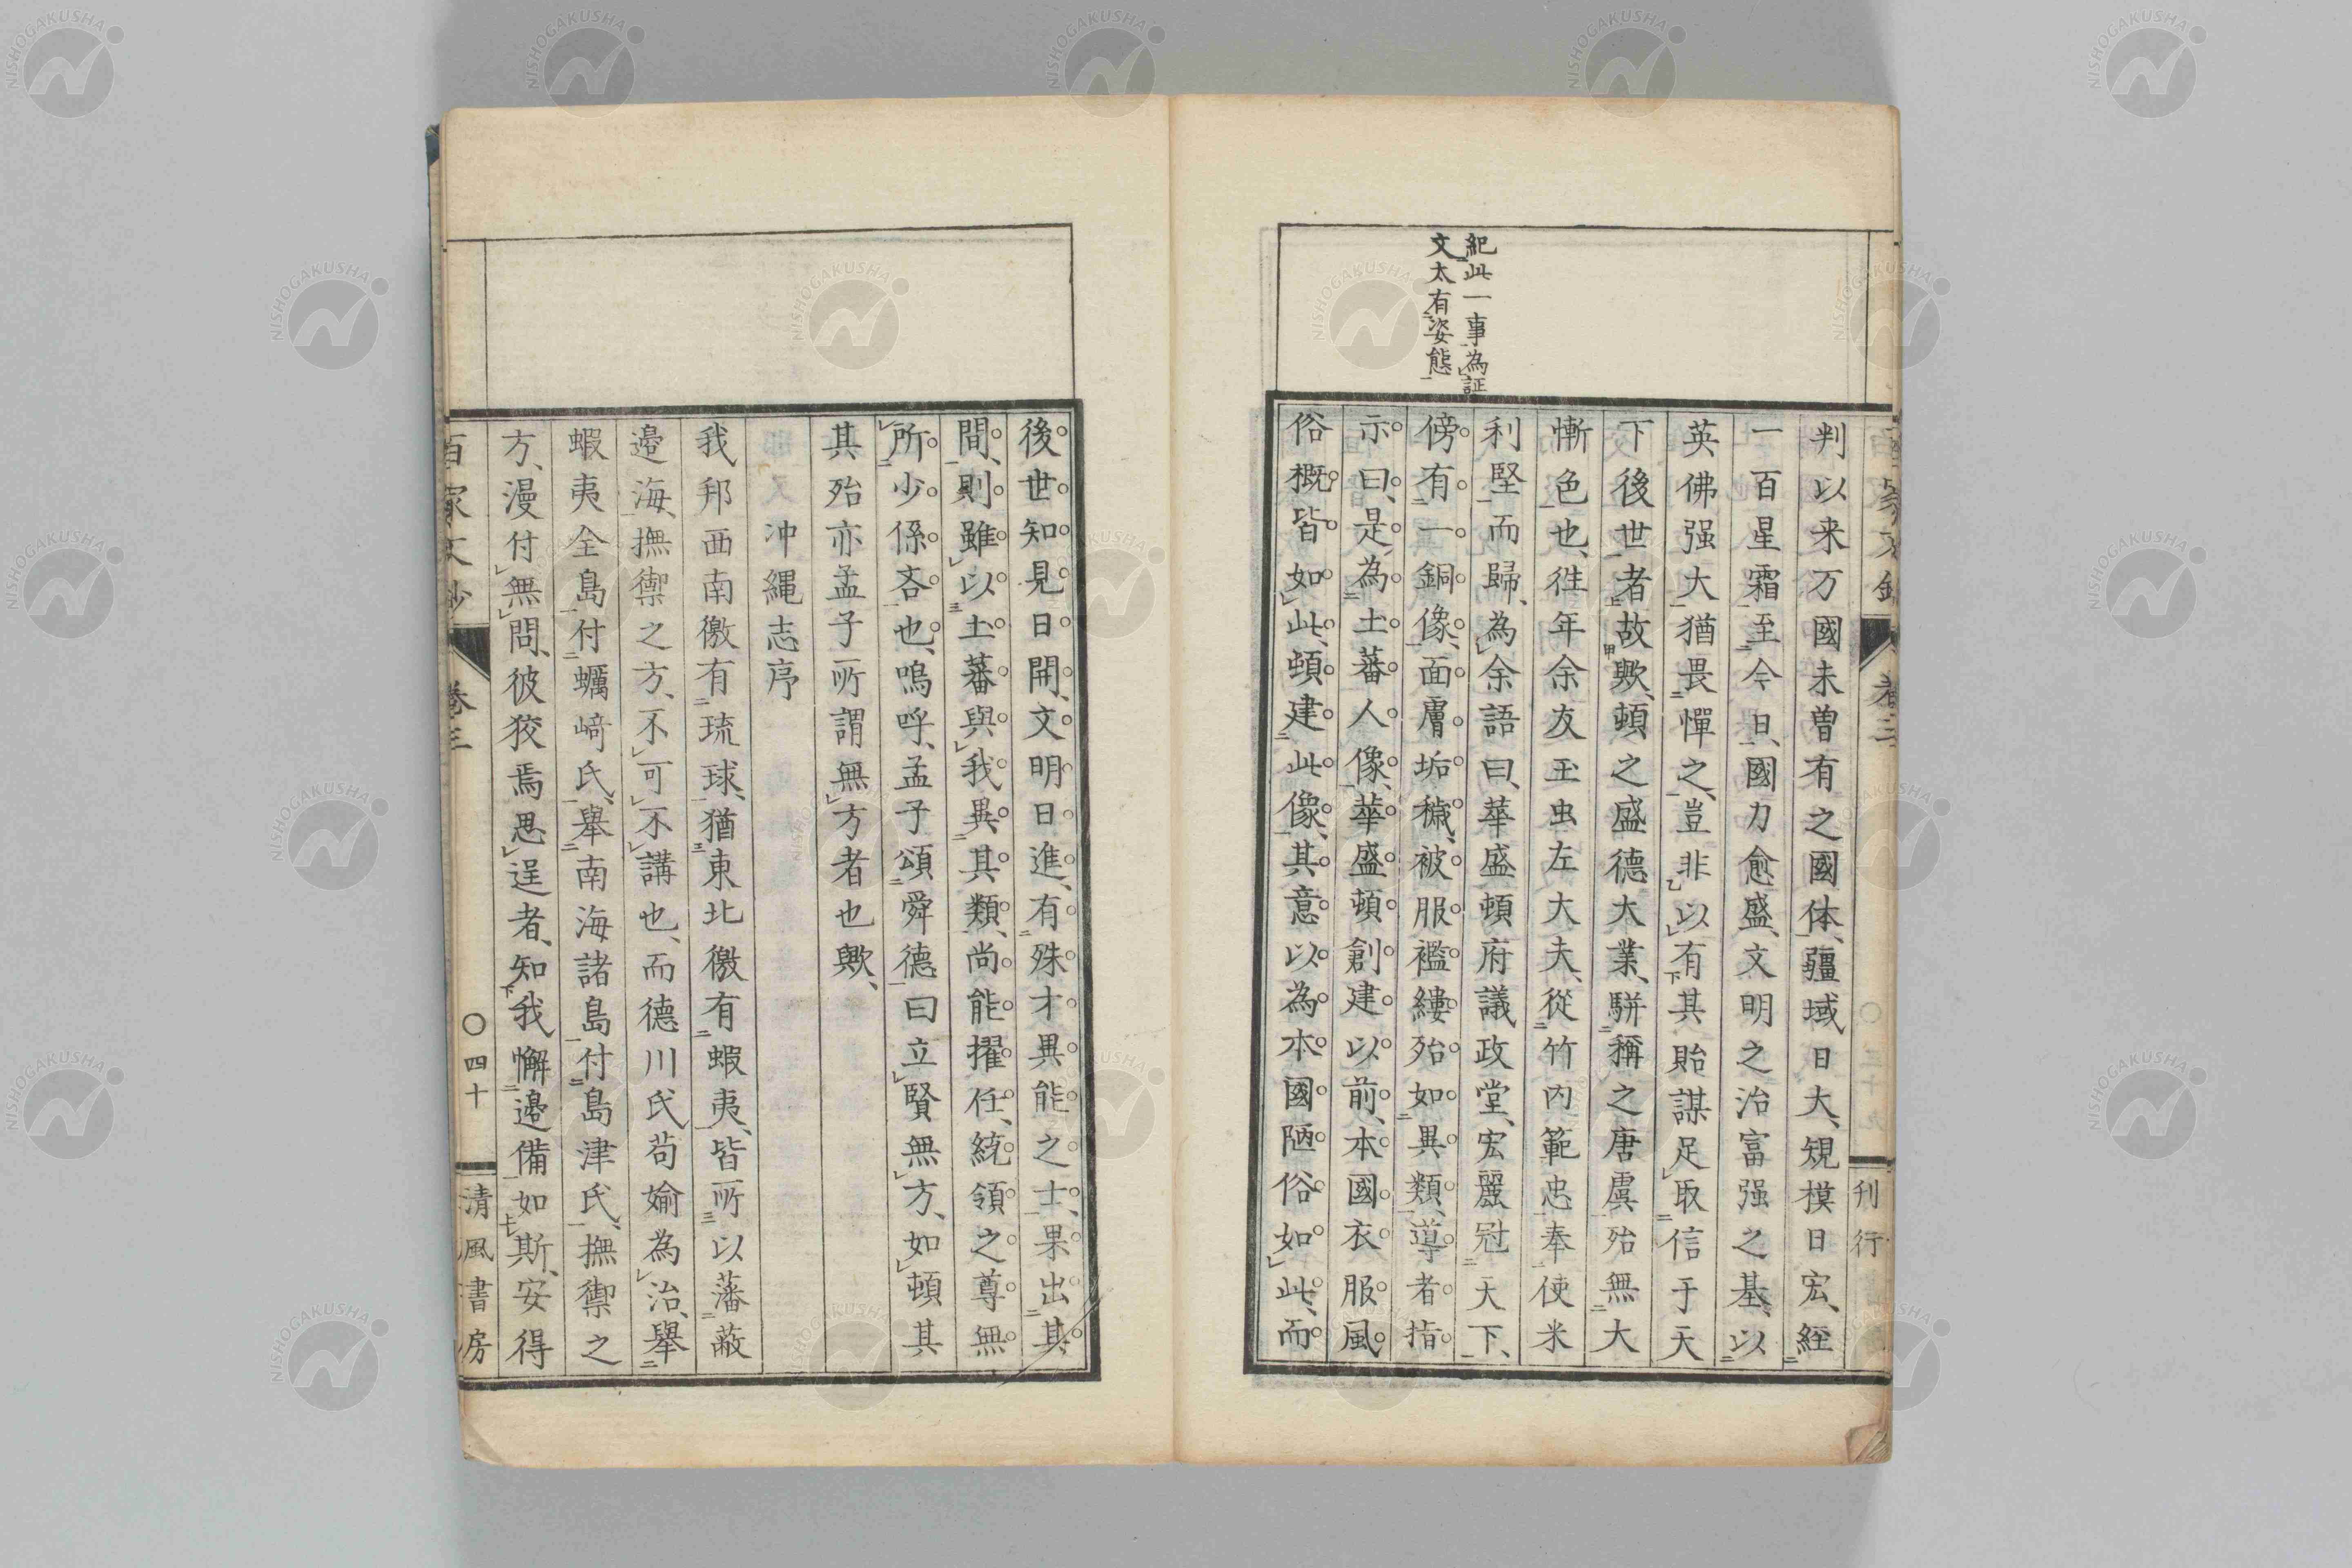 紀此一事為証
文太有姿態
判以来万國未曽有之國体、疆域日大、規模日宏、経
一百星霜至今日、國力愈盛、文明之治富强之基、以
英佛强大猶畏憚之、豈非以有其貽謀足取信于天
下後世者故歟、頓之盛德大業、駢稱之唐虞殆無大
慚色也、徃年余友玉虫左大夫、從竹内範忠奉使米
利堅而歸、為余語曰、華盛頓府議政堂、宏麗冠天下、
傍有一銅像、面膚垢穢、被服襤縷殆如異類、導者指
示曰、是為土蕃人像、華盛頓創建以前、本國衣服風
俗概皆如此、頓建此像、其意以為本國陋俗如此、而
刊行
後世知見日開、文明日進、有殊才異能之士、果出其
間、則雖以土蕃與我異其類、尚能擢任、統領之尊無
所少係吝也、嗚呼、孟子頌舜德曰立賢無方、如頓其
其殆亦孟子所謂無方者也歟、
沖縄志序
我邦西南徼有琉球、猶東北徼有蝦夷、皆所以藩蔽
邉海、撫禦之方、不可不講也、而德川氏苟媮為治、舉
蝦夷全島付蠣﨑氏、舉南海諸島付島津氏、撫禦之
方、漫付無問、彼狡焉思逞者、知我懈邉備如斯、安得
卷三
〇四十
清風書房